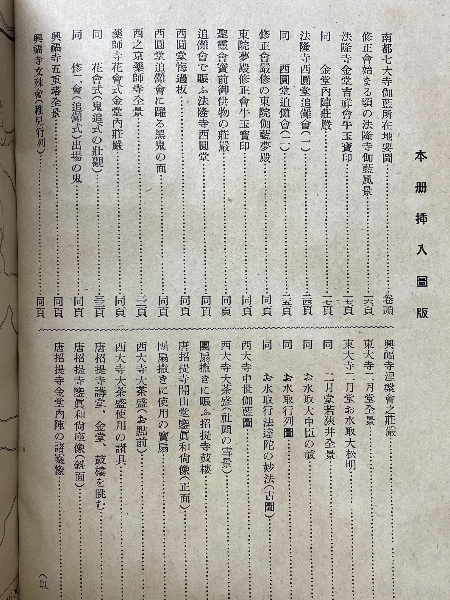 本册挿入圖版
南都七大寺伽藍所在地要圖……卷頭
修正會始まる頃の法隆寺伽藍風景……一六頁
法隆寺金堂吉祥會牛玉寶印……一七頁
同 金堂內陣莊嚴……二七頁
法隆寺西圓堂追儺會(一)……二四頁
同 西圓堂追儺會(二)……二五頁
修正會嚴修の東院伽藍夢殿……同頁
東院夢殿修正會牛玉寶印……同頁
聖靈會寶前御供物の莊嚴……同頁
追儺會で賑ふ法隆寺西圓堂……同頁
西圓堂悔過板……同頁
西圓堂追儺會に躍る黑鬼の面……同頁
西之京藥師寺全景……三二頁
藥師寺花會式金堂內莊嚴……同頁
同 花會式(鬼追式の壯觀)……三三頁
同 修二會(追儺式)出場の鬼……同頁
興福寺五重塔全景……同頁
興福寺文殊會(稚兒行列)……同頁
興福寺涅槃會之莊嚴
東大寺二月堂全景
東大寺二月堂お水取大松明
同 二月堂若狹井全景
同 お水取大中臣の祓
同 お水取行列圖
同 お水取行法達陀の妙法(古圖)
西大寺中世伽藍圖
西大寺大茶盛(社頭の雪景)
團扇撒きに賑ふ招提寺鼓樓
唐招提寺開山堂鑒眞和尙像(正面)
團扇撒きに使用の寶扇
西大寺大茶盛(お點前)
西大寺大茶盛使用の諸具
唐招提寺講堂、金堂、鼓樓を眺む
唐招提寺鑒眞和尙座像(斜面)
唐招提寺金堂內陣の諸尊像